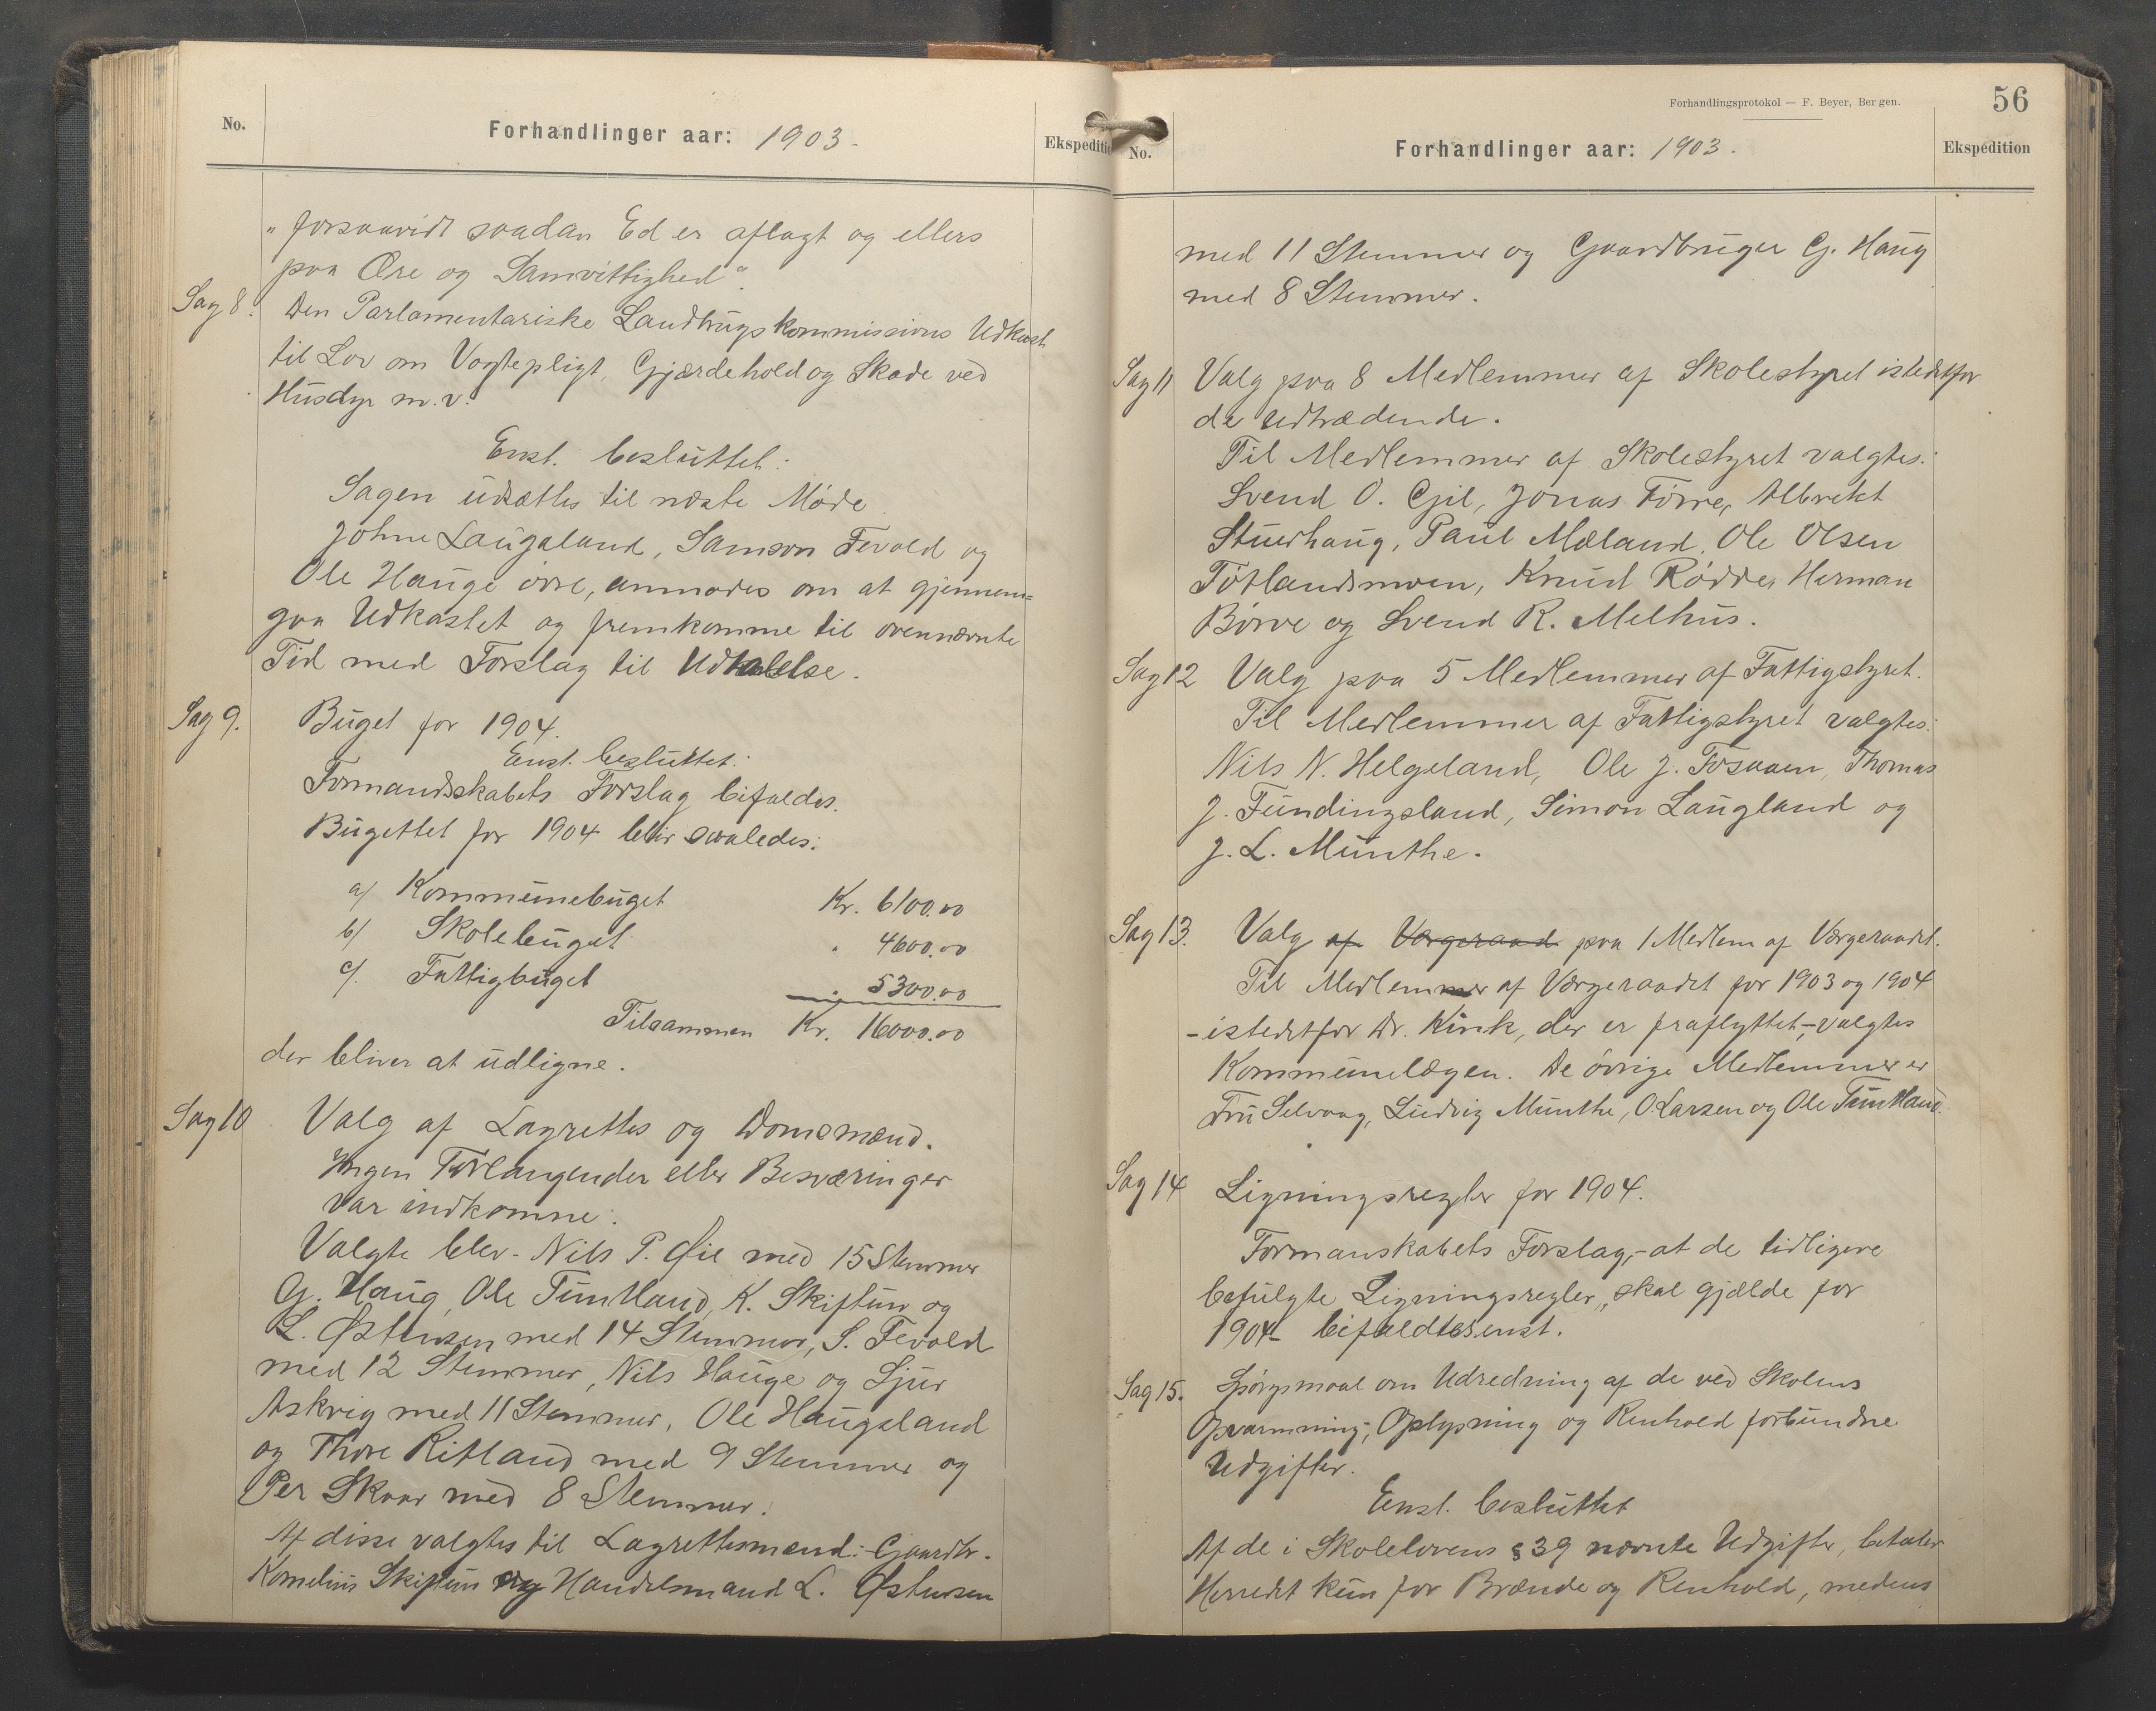 No.
Forhandlinger aar: 1903.
Ekspeditio
"forsaavidt saadan Ed er aflagt og ellers
paa Ære og Samvittighed".
Sag 8. Den Parlamentariske Landbrugskommissions Udkast
til Lov om Vogtepligt, Gjærdehold og Skade ved
Husdyr m.v.
Enst. besluttet:
Sagen udsættes til næste Møde.
Johne Laugaland, Samson Fevold og
Ole Hauge övre, anmodes om at gjennem=
gaa Udkastet og fremkomme til ovennævnte
Tid med Forslag til Udtalelse.
Sag 9. Buget for 1904.
Enst. besluttet:
Formandsskabets Forslag bifaldes.
Bugettet for 1904 blir saaledes:
a/ Kommunebuget Kr. 6100.00
b/ Skolebuget " 4600.00
c/. Fattigbuget " 5300.00
Tilsammen Kr. 16000.00
der bliver at udligne.
Sag 10 Valg af Lagrettes og Domsmænd.
Ingen Forlangender eller Besværinger
var indkomne.
Valgte blev - Nils P. Øie med 15 Stemmer
G. Haug, Ole Tuntland, K. Skiftun og
L. Østensen med 14 Stemmer, S. Fevold
med 12 Stemmer, Nils Hauge og Sjur
Askvig med 11 Stemmer, Ole Haugaland
og Thore Ritland med 9 Stemmer og
Per Skaar med 8 Stemmer.
Af disse valgtes til Lagrettesmænd: - Gaardbr.
Kornelius Skiftun og Handelsmand L. Østensen
Forhandlingsprotokol — F. Beyer, Bergen.
56
No.
Forhandlinger aar: 1903.
Ekspedition
med 11 Stemmer og Gaardbruger G. Haug
med 8 Stemmer.
Sag 11 Valg paa 8 Medlemmer af Skolestyret istedetfor
de udtrædende.
Til Medlemmer af Skolestyret valgtes:
Svend O. Gjil, Jonas Förre, Albrekt
Stuerhaug, Paul Mæland, Ole Olsen
Tötlandsmoen, Knud Rödde, Herman
Börve og Svend R. Melhus.
Sag 12 Valg paa 5 Medlemmer af Fattigstyret.
Til Medlemmer af Fattigstyret valgtes:
Nils N. Helgeland, Ole J. Fosaaen, Thomas
J. Fundingsland, Simon Laugland og
J. L. Munthe.
Sag 13. Valg af Værgeraad paa 1 Medlem af Værgeraadet.
Til Medlemmer af Værgeraadet for 1903 og 1904
- istedetfor Dr. Kink, der er fraflyttet, - valgtes
Kommunelægen. De övrige Medlemmer er
Fru Selvaag, Ludvig Munthe, O. Larsen og Ole Tuntland.
Sag 14 Ligningsregler for 1904.
Formanskabets Forslag, - at de tidligere
befulgte Ligningsregler, skal gjælde for
1904 - bifaldtes enst.
Sag 15. Spörgsmaal om Udredning af de ved Skolens
Opvarmning, Oplysning og Renhold forbundne
Udgifter.
Enst. besluttet
Af de i Skolelovens § 39 nævnte Udgifter, betaler
Herredet kun for Brænde og Renhold, medens